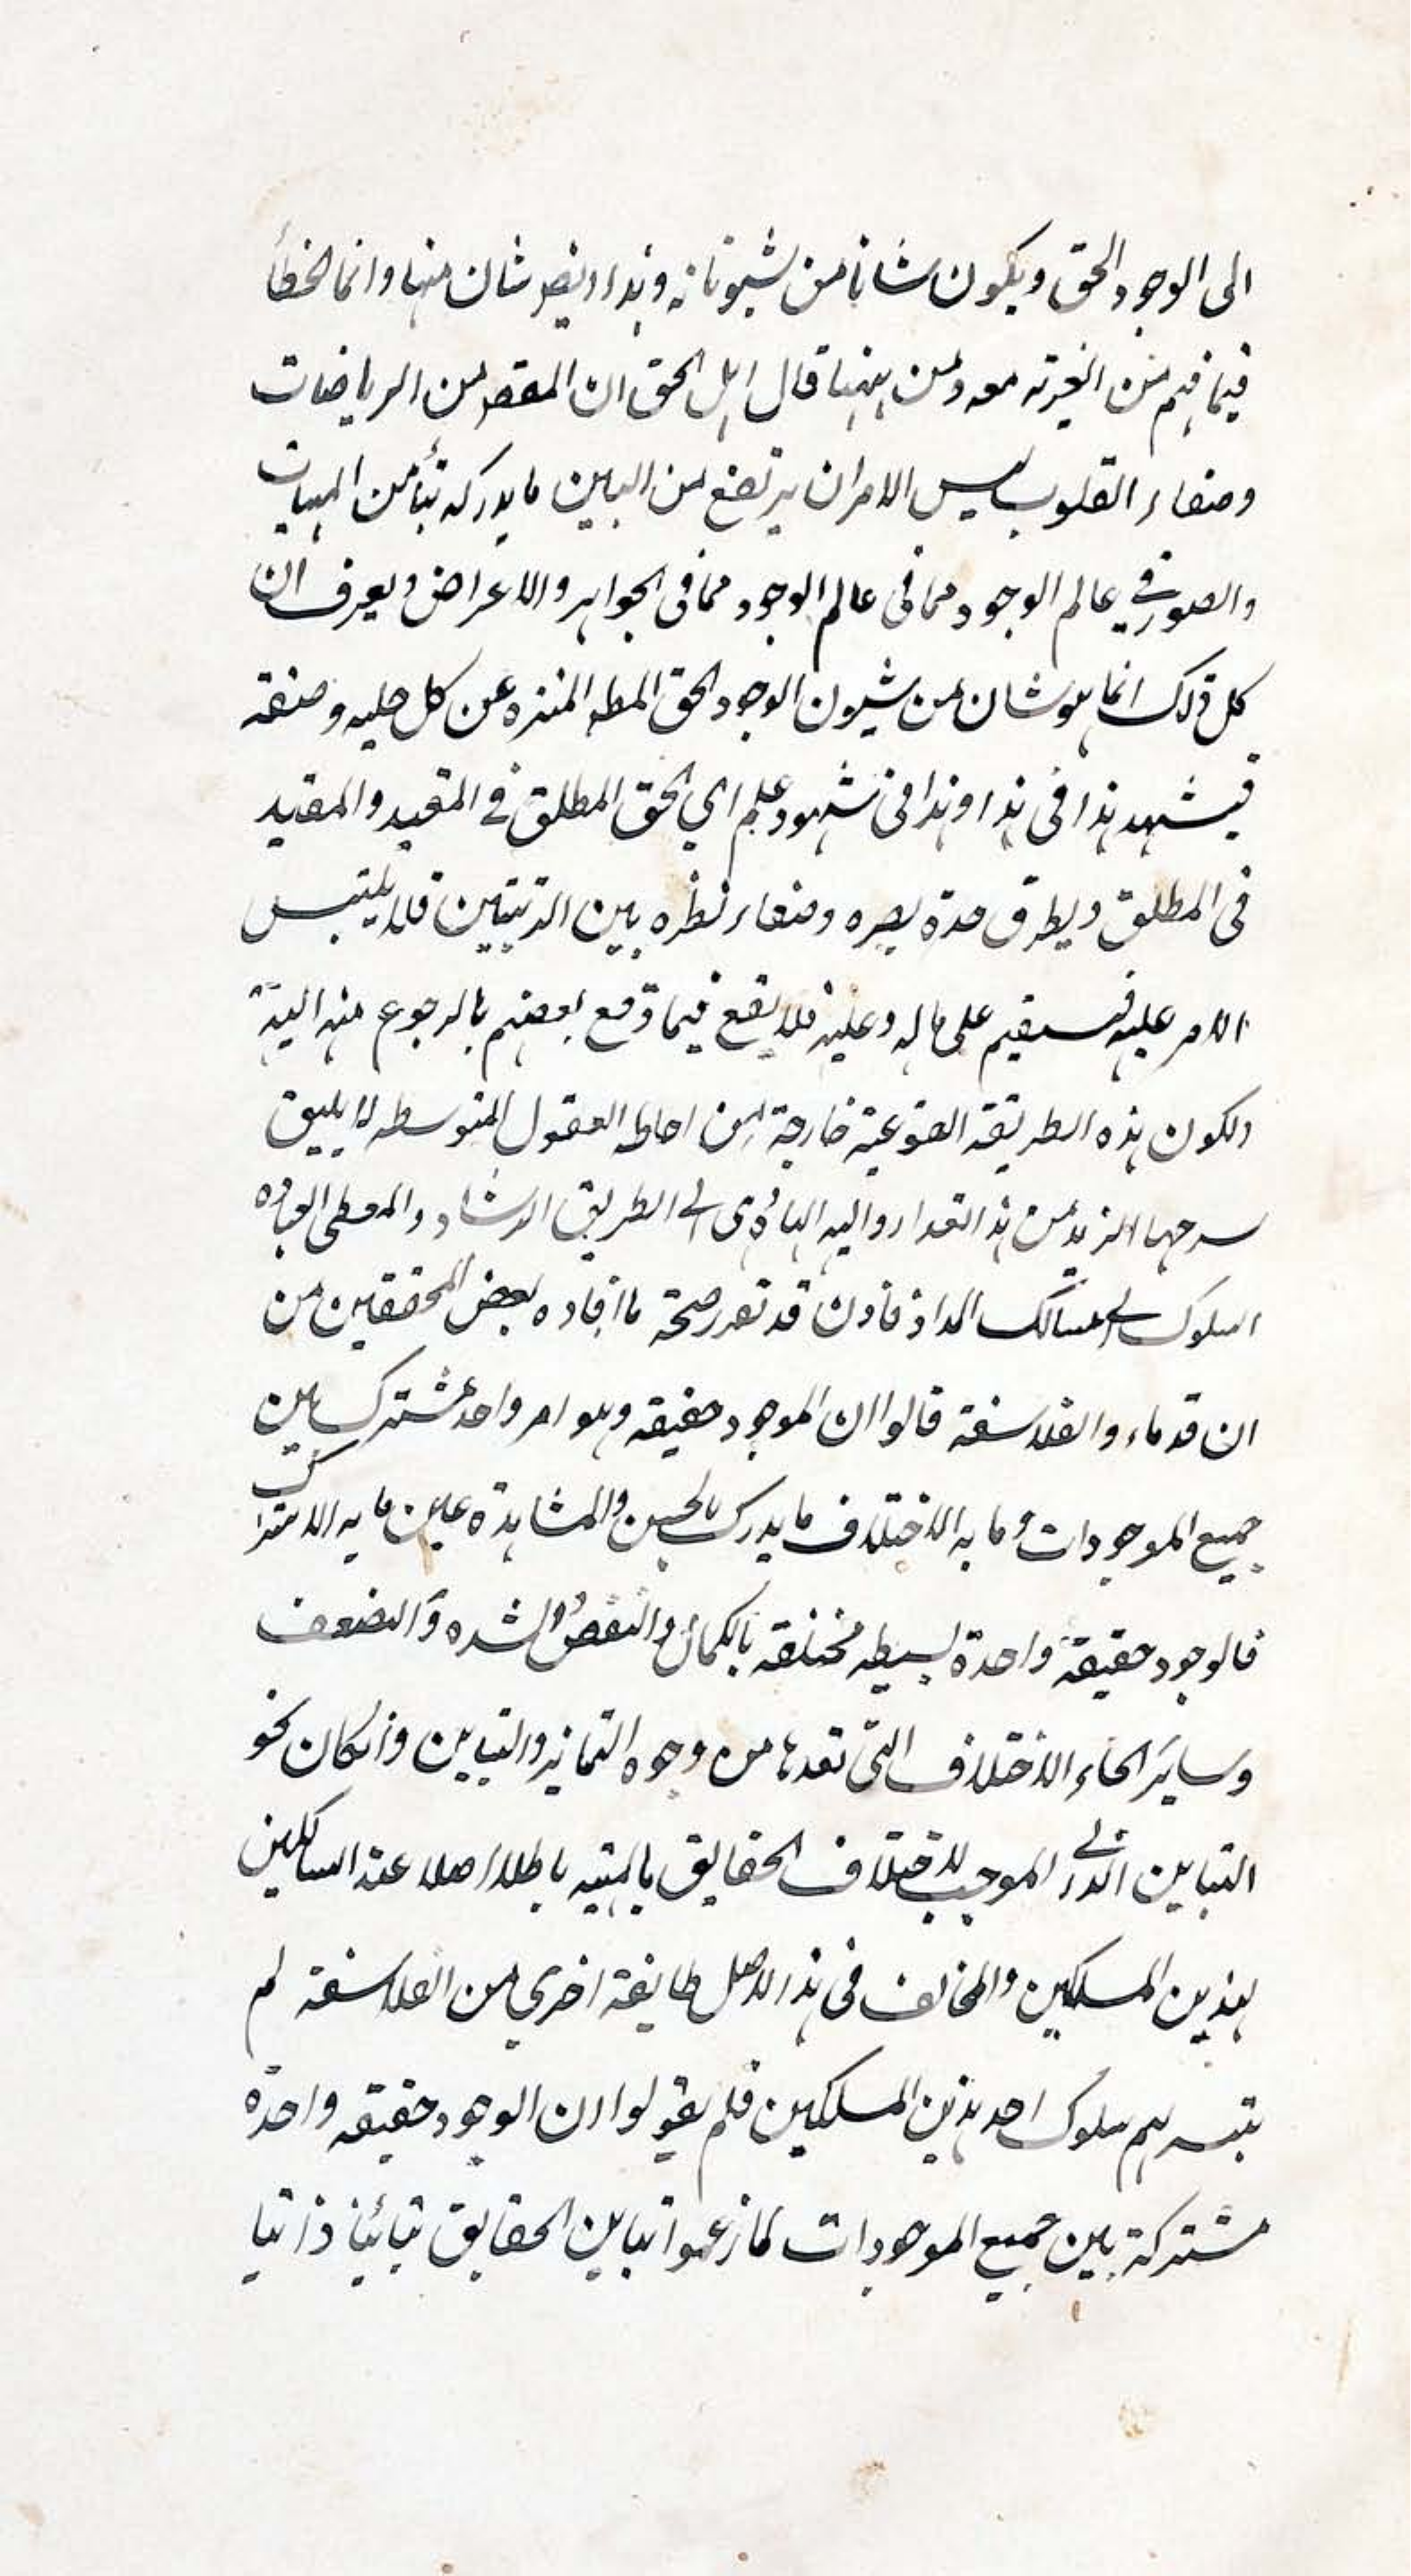 الى الوجود الحق ويكون شانا من شيوناته وهذا ايضر شان منها وانما الخطأ
فيما فهم من الغيرته معه ومن ههنا قال اهل الحق ان المقصر من الرياضات
وصفاء القلوب ليس الامر ان يرتفع من البين ما يدركه بتأمن الهيات
والصور في عالم الوجود مما في عالم الوجود مما في الجواهر والاعراض ويعرف ان
كل ذلك انما هو شان من شيون الوجود الحق المطه المنزه عن كل حليه وصفة
فيشهد هذا في هذا وهذا في شهود علم اي الحق المطلق في المقيد والمقيد
في المطلق ويطرق حدة بصره وصفاء نظره بين الرتبتين فلا يلتبس
الامر عليه فيستقيم على ماله وعليه فلا يقع فيما وقع بعضهم بالرجوع منه اليه
ولكون هذه الطريقة خارجة من احاطه العقول المتوسطه لا يليق
سرحها ازيد من هذا القدار واليه الهادى الى الطريق الرشاد والمعطى
السلوك الى مسالك السداد فاذن قد تقرر صحة ما افاده بعض المحققين من
ان قدماء والفلاسفة قالوا ان الموجود حقيقه وهو امر واحد مشترك بين
جميع الموجودات وما به الاختلاف ما يدرك بالحس والمشاهدة عين ما به الاشتراك
فالوجود حقيقة واحدة بسيطه مختلفه بالكمال والنقص والشده والضعف
وساير انحاء الاختلاف التى نعدها من وجوه التمايز والتباين واذا كان نحو
التباين الذاتي الموجب لاختلاف الحقايق بالمهيه باطلا اصلا عند السالكين
بهذين المسلكين والمخالف في هذا الاصل طايفة اخري من الفلاسفة لم
يتيسر لهم سلوك احد هذين المسلكين فلم يقولوا ان الوجود حقيقه واحدة
مشتركة بين جميع الموجودات لما زعموا تباين الحقايق تبائنا ذاتيا